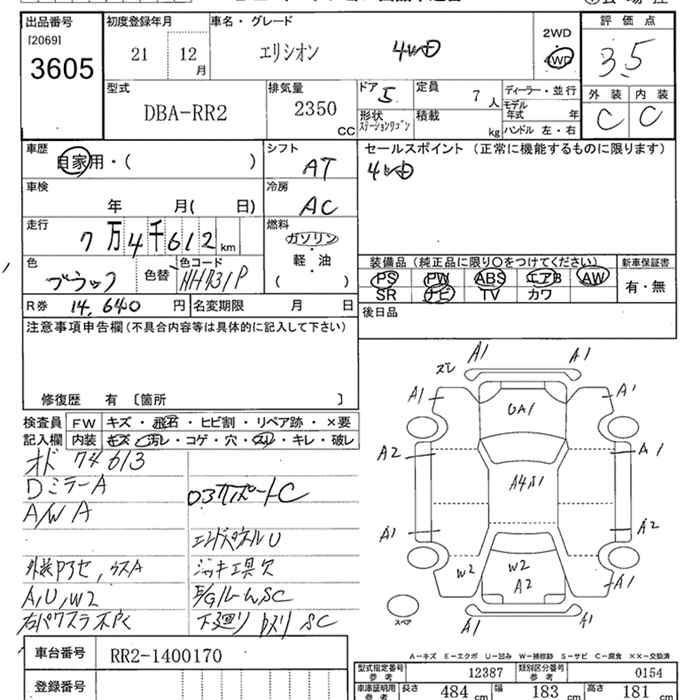 出品番号 初度登録年月 車名・グレード 評価点
[2069]
3605 21 12月 エリシオン 4WD 2WD 4WD 3.5
外装 内装
C C
型式 排気量 ドア 定員 ディーラー・並行
DBA-RR2 2350 CC 5 7人 モデル年式 年
形状 積載 ハンドル 左・右
ステーションワゴン kg
車歴 シフト セールスポイント (正常に機能するものに限ります)
自家用・( ) AT 4WD
車検 冷房
年 月( 日) AC
走行 燃料
7万4千612km ガソリン・軽・油( )
色 色替 色コード
ブラック NH731P
装備品 (純正品に限り○をつけてください) 新車保証書
PS PW ABS エアB AW 有・無
SR ナビ TV カワ
R券 14,640円 名変期限 月 日 後日品
注意事項申告欄 (不具合内容等は具体的に記入して下さい)
修復歴 有 〔箇所 〕
検査員記入欄
FW キズ・飛石・ヒビ割・リペア跡・×要
内装 キズ・汚レ・コゲ・穴・スリ・キレ・破レ
オド 74613
DミラーA
A/W A
エンドパネルU
外装 ジャッキ工具欠
A,U,W2 E/GルームSC
右パワスラ不良 下廻り サビ SC
ズレ A1 A1
A1 UA1 A1
A2 A4 A1 A1
A1 A2
W2 W2 A2 A1
スペア A1 A1
A-キズ E-エクボ U-凹み W-補修跡 S-サビ C-腐食 ××-交換済
車台番号 RR2-1400170
型式指定番号 参考 12387 類別区分番号 参考 0154
登録番号
車庫証明用 参考 長さ 484 cm 幅 183 cm 高さ 181 cm